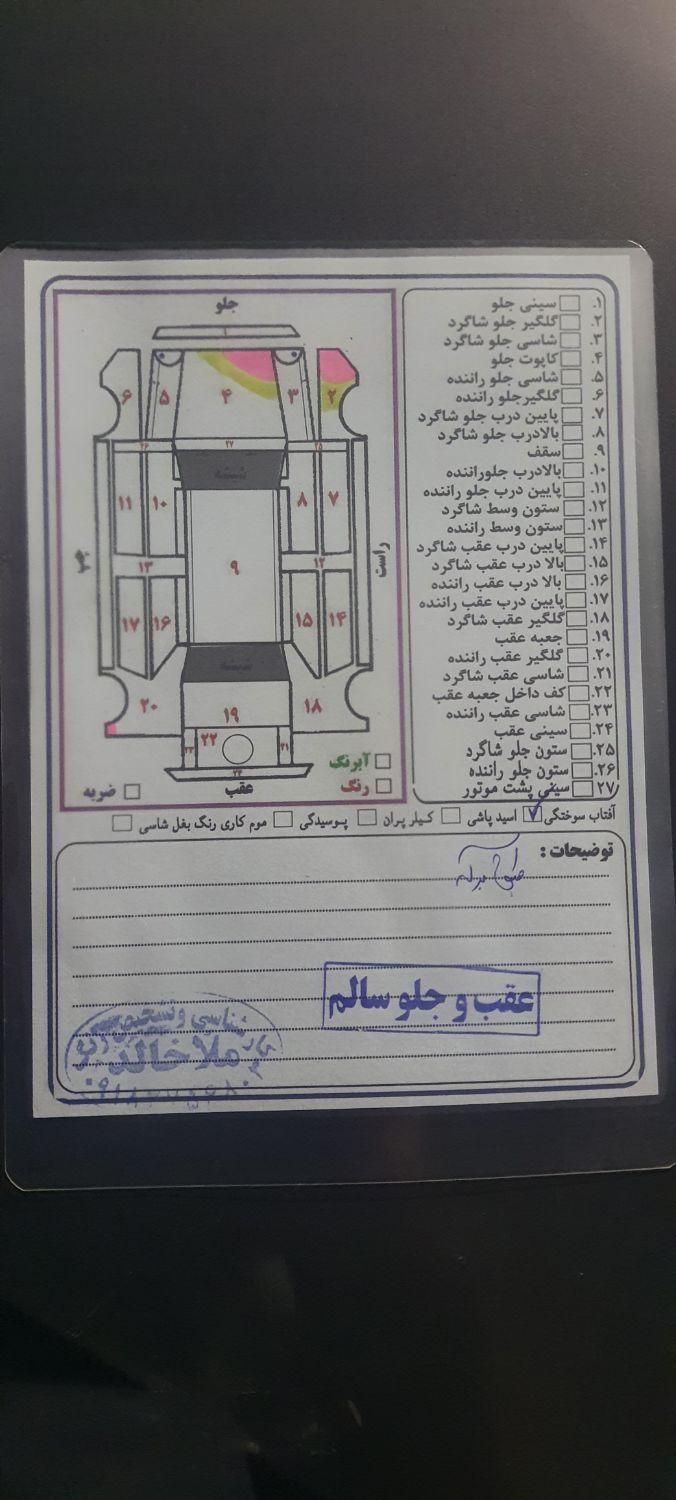 ۱. سینی جلو
۲. گلگیر جلو شاگرد
۳. شاسی جلو شاگرد
۴. کاپوت جلو
۵. شاسی جلو راننده
۶. گلگیرجلو راننده
۷. پایین درب جلو شاگرد
۸. بالادرب جلو شاگرد
۹. سقف
۱۰. بالادرب جلوراننده
۱۱. پایین درب جلو راننده
۱۲. ستون وسط شاگرد
۱۳. ستون وسط راننده
۱۴. پایین درب عقب شاگرد
۱۵. بالا درب عقب شاگرد
۱۶. بالا درب عقب راننده
۱۷. پایین درب عقب راننده
۱۸. گلگیر عقب شاگرد
۱۹. جعبه عقب
۲۰. گلگیر عقب راننده
۲۱. شاسی عقب شاگرد
۲۲. کف داخل جعبه عقب
۲۳. شاسی عقب راننده
۲۴. سینی عقب
۲۵. ستون جلو شاگرد
۲۶. ستون جلو راننده
۲۷. سینی پشت موتور
جلو
۱
۲ ۳ ۴ ۵ ۶
۲۵ ۲۷ ۲۶
شیشه
۷ ۸ ۱۰ ۱۱
راست ۹ چپ
۱۲ ۱۳
۱۴ ۱۵ ۱۶ ۱۷
شیشه
۱۸ ۱۹ ۲۰
۲۱ ۲۲ ۲۳
۲۴
عقب
آبرنگ
رنگ
ضربه
آفتاب سوختگی اسید پاشی کیلر پران پوسیدگی موم کاری رنگ بغل شاسی
توضیحات :
عقب و جلو سالم
کارشناسی و تشخیص رنگ
ملا خالد